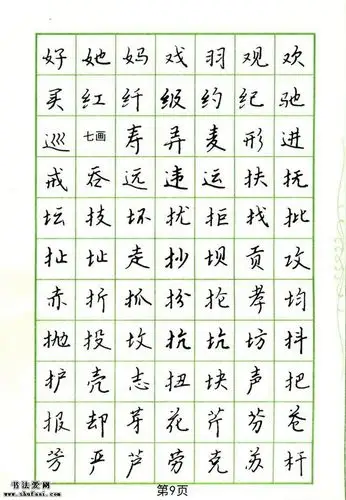 好 她 妈 戏 羽 观 欢
买 红 纤 级 约 纪 驰
巡 七画 寿 弄 麦 形 进
戒 吞 远 违 运 扶 抚
坛 技 坏 扰 拒 找 批
扯 址 走 抄 坝 贡 攻
赤 折 抓 扮 抢 孝 均
抛 投 坟 抗 坑 坊 抖
护 壳 志 扭 块 声 把
报 却 芽 花 芹 芬 苍
芳 严 芦 劳 克 苏 杆
书法爱网
www.shufaai.com
第9页